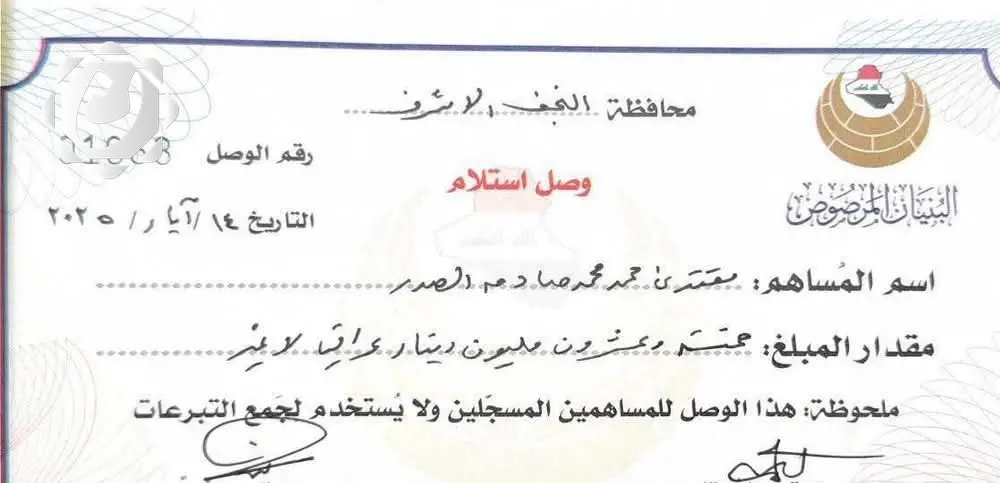 محافظة النجف الاشرف
رقم الوصل
وصل استلام
البنيان المرصوص
التاريخ ١٤ / آيار / ٢٠٢٥
اسم المُساهم: مقتدى محمد محمد صادق الصدر
مقدار المبلغ: خمسة وعشرون مليون دينار عراقي لا غير
ملحوظة: هذا الوصل للمساهمين المسجّلين ولا يُستخدم لجَمع التبرعات